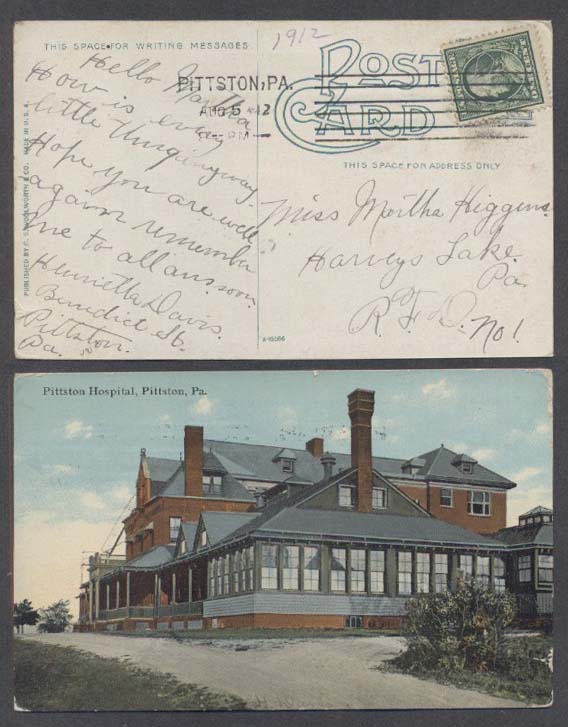 THIS SPACE FOR WRITING MESSAGES
1912
POST
CARD
PITTSTON, PA.
AUG 5
THIS SPACE FOR ADDRESS ONLY
Hello Martha
How is every
little thing anyway
Hope you are well
again remember
me to all ans. soon.
Henrietta Davis.
Bendict St.
Pittston.
Pa.
Miss Martha Higgins.
Harveys Lake
Pa.
R.F.D. No 1
PUBLISHED BY F. W. WOOLWORTH & CO. MADE IN U.S.A.
Pittston Hospital, Pittston, Pa.